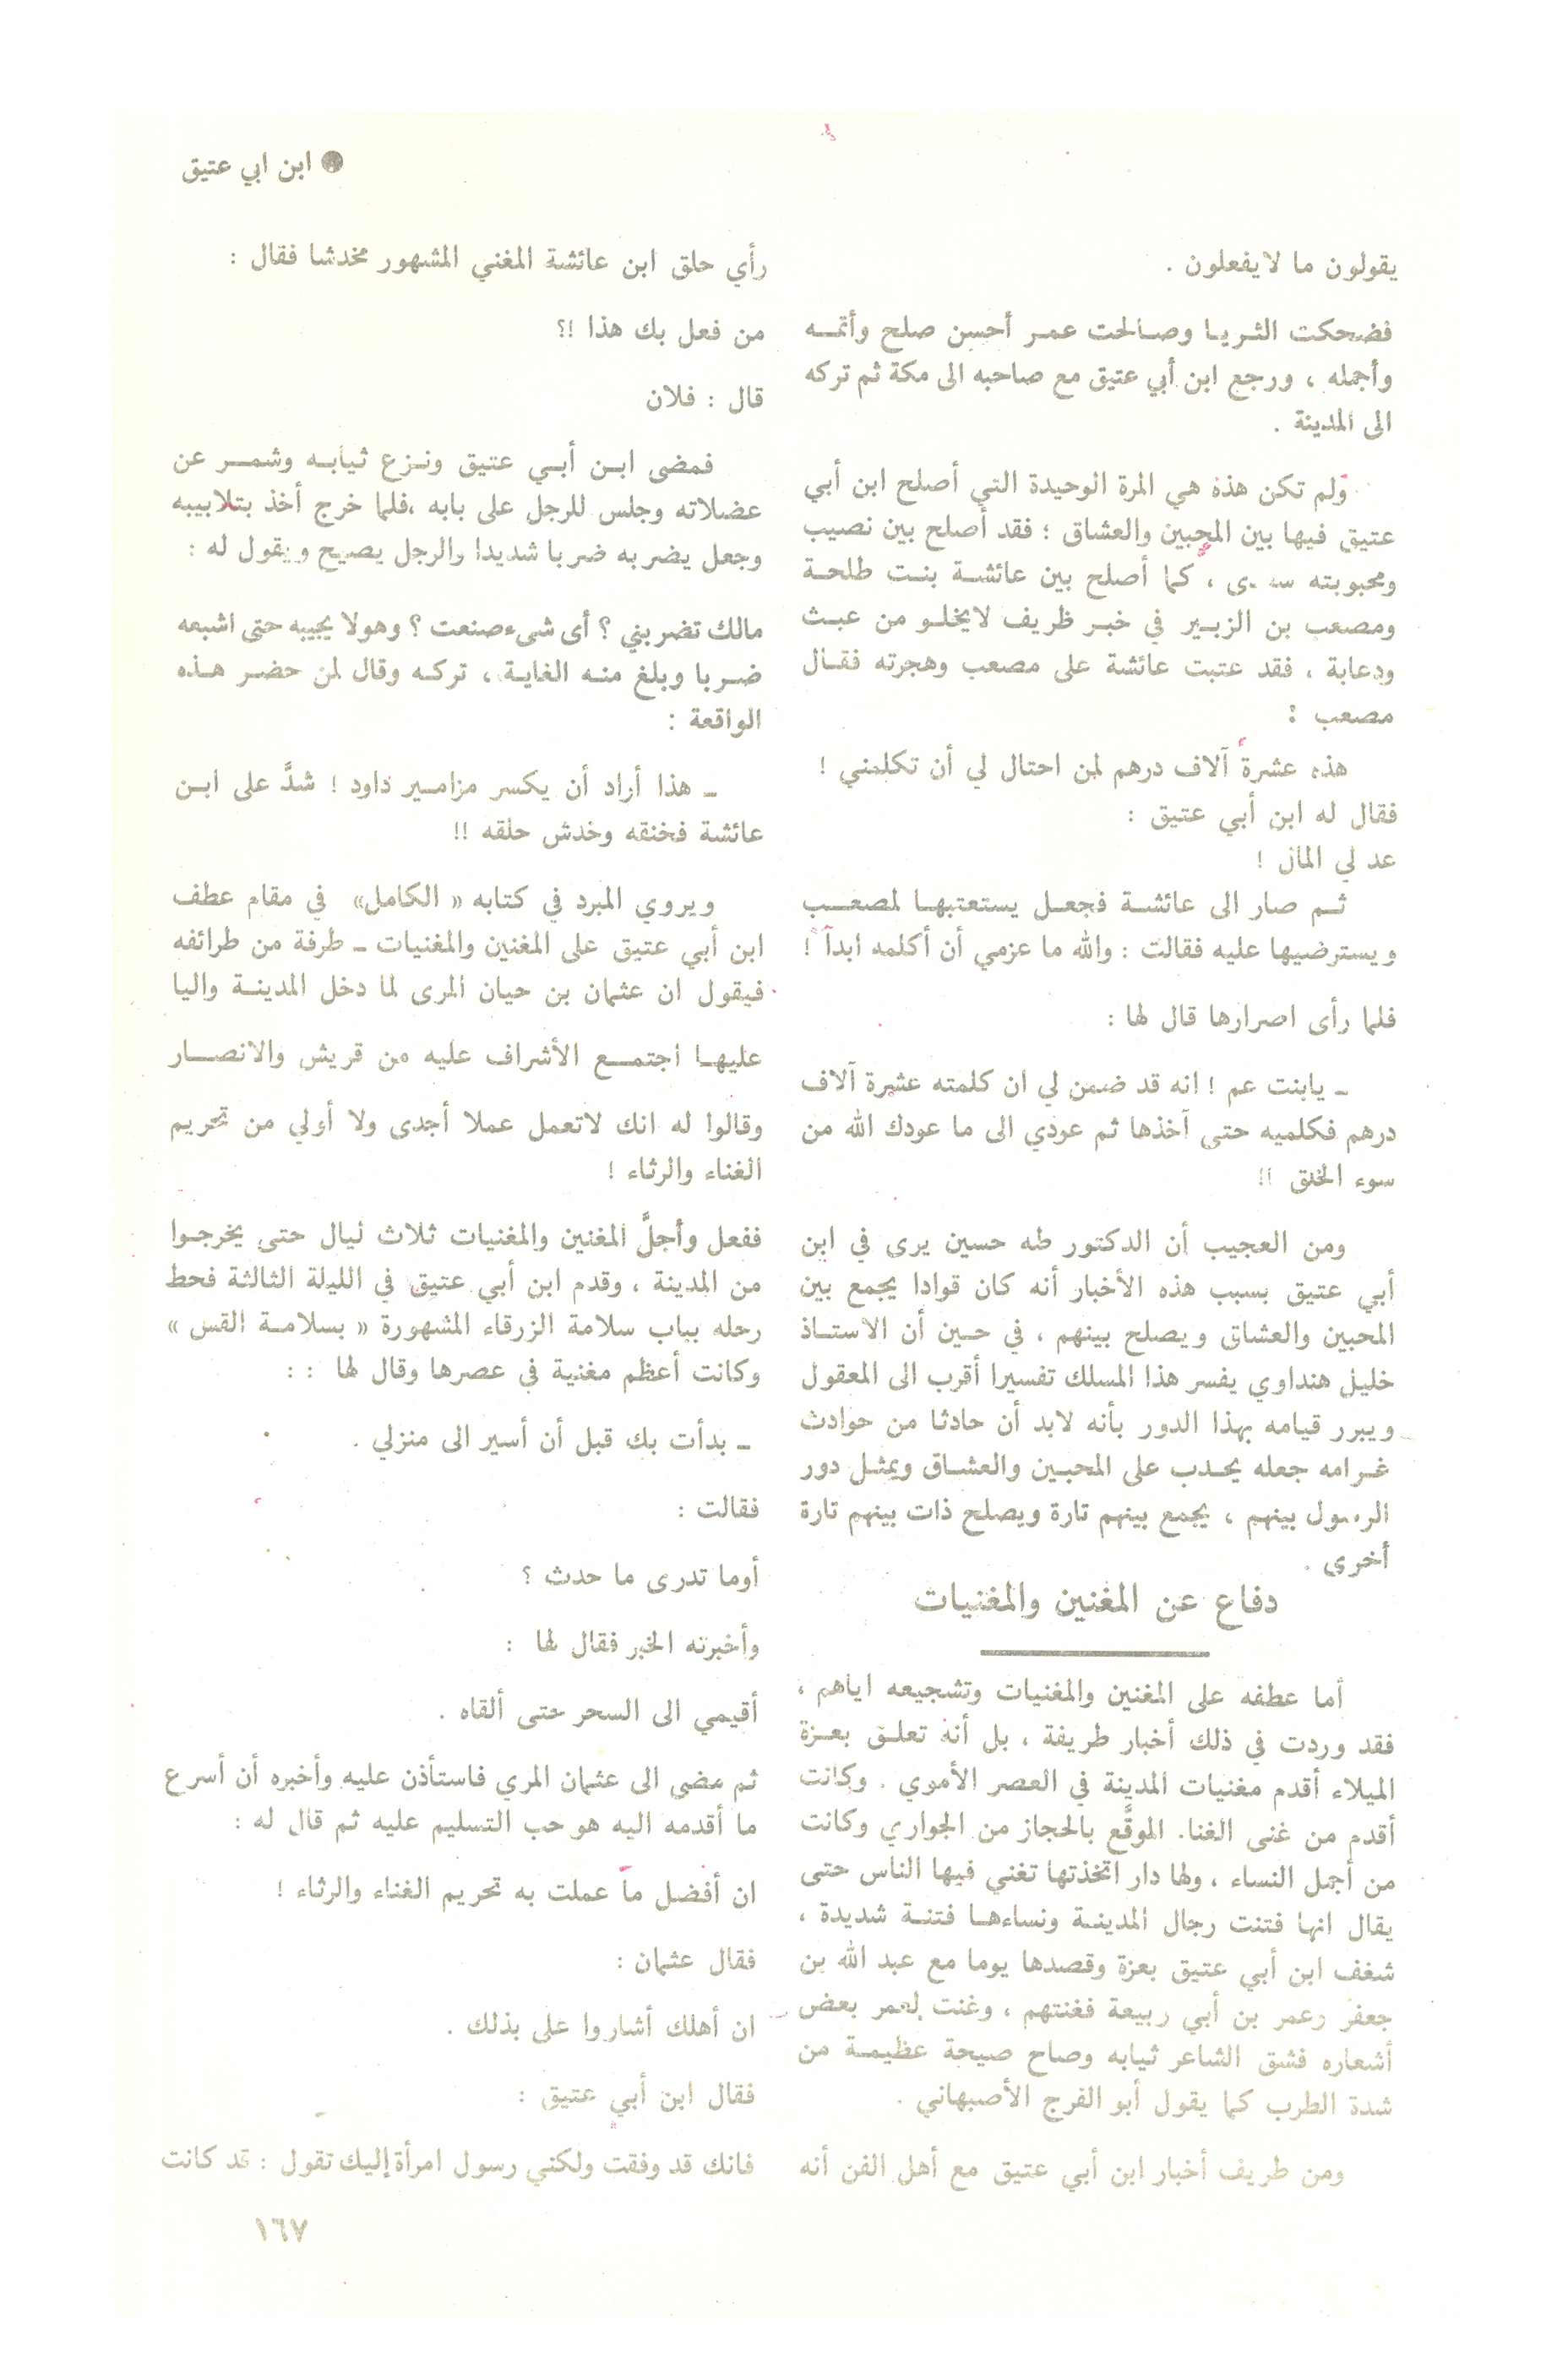 ● ابن ابي عتيق
يقولون ما لا يفعلون .
فضحكت الثريا وصالحت عمر أحسن صلح وأتمه
وأجمله ، ورجع ابن أبي عتيق مع صاحبه الى مكة ثم تركه
الى المدينة .
ولم تكن هذه هي المرة الوحيدة التي أصلح ابن أبي
عتيق فيها بين المحبين والعشاق ؛ فقد أصلح بين نصيب
ومحبوبته ، كما أصلح بين عائشة بنت طلحة
ومصعب بن الزبير في خبر ظريف لايخلو من عبث
ودعابة ، فقد عتبت عائشة على مصعب وهجرته فقال
مصعب :
هذه عشرة آلاف درهم لمن احتال لي أن تكلمني !
فقال له ابن أبي عتيق :
عد لي المال !
ثم صار الى عائشة فجعل يستعتبها لمصعب
ويسترضيها عليه فقالت : والله ما عزمي أن أكلمه ابدآ !
فلما رأى اصرارها قال لها :
ـ يابنت عم ! انه قد ضمن لي ان كلمته عشرة آلاف
درهم فكلميه حتى آخذها ثم عودي الى ما عودك الله من
سوء الخلق !!
ومن العجيب أن الدكتور طه حسين يرى في ابن
أبي عتيق بسبب هذه الأخبار أنه كان قوادا يجمع بين
المحبين والعشاق ويصلح بينهم ، في حين أن الاستاذ
خليل هنداوي يفسر هذا المسلك تفسيرا أقرب الى المعقول
ويبرر قيامه بهذا الدور بأنه لابد أن حادثا من حوادث
غرامه جعله يحدب على المحبين والعشاق ويمثل دور
الرسول بينهم ، يجمع بينهم تارة ويصلح ذات بينهم تارة
أخرى .
دفاع عن المغنين والمغنيات
أما عطفه على المغنين والمغنيات وتشجيعه اياهم ،
فقد وردت في ذلك أخبار طريفة ، بل أنه تعلق بعزة
الميلاء أقدم مغنيات المدينة في العصر الأموي . وكانت
أقدم من غنى الغنا. الموقَّع بالحجاز من الجواري وكانت
من أجمل النساء ، ولها دار اتخذتها تغني فيها الناس حتى
يقال انها فتنت رجال المدينة ونساءها فتنة شديدة ،
شغف ابن أبي عتيق بعزة وقصدها يوما مع عبد الله بن
جعفر وعمر بن أبي ربيعة فغنتهم ، وغنت لعمر بعض
أشعاره فشق الشاعر ثيابه وصاح صيحة عظيمة من
شدة الطرب كما يقول أبو الفرج الأصبهاني .
ومن طريف أخبار ابن أبي عتيق مع أهل الفن أنه
رأي حلق ابن عائشة المغني المشهور مخدشا فقال :
من فعل بك هذا !؟
قال : فلان
فمضى ابن أبي عتيق ونزع ثيابه وشمر عن
عضلاته وجلس للرجل على بابه ،فلما خرج أخذ بتلابيبه
وجعل يضربه ضربا شديدا والرجل يصيح ويقول له :
مالك تضربني ؟ أى شىء صنعت ؟ وهولا يجيبه حتى اشبعه
ضربا وبلغ منه الغاية ، تركه وقال لمن حضر هذه
الواقعة :
ـ هذا أراد أن يكسر مزامير داود ! شدَّ على ابن
عائشة فخنقه وخدش حلقه !!
ويروي المبرد في كتابه « الكامل» في مقام عطف
ابن أبي عتيق على المغنين والمغنيات ـ طرفة من طرائفه
فيقول ان عثمان بن حيان المرى لما دخل المدينة واليا
عليها اجتمع الأشراف عليه من قريش والانصار
وقالوا له انك لاتعمل عملا أجدى ولا أولي من تحريم
الغناء والرثاء !
ففعل وأجلَّ المغنين والمغنيات ثلاث ليال حتى يخرجوا
من المدينة ، وقدم ابن أبي عتيق في الليلة الثالثة فحط
رحله بباب سلامة الزرقاء المشهورة « بسلامة القس »
وكانت أعظم مغنية في عصرها وقال لها : :
ـ بدأت بك قبل أن أسير الى منزلي .
فقالت :
أوما تدرى ما حدث ؟
وأخبرته الخبر فقال لها :
أقيمي الى السحر حتى ألقاه .
ثم مضى الى عثمان المري فاستأذن عليه وأخبره أن أسرع
ما أقدمه اليه هو حب التسليم عليه ثم قال له :
ان أفضل ما عملت به تحريم الغناء والرثاء !
فقال عثمان :
ان أهلك أشاروا على بذلك .
فقال ابن أبي عتيق :
فانك قد وفقت ولكني رسول امرأة إليك تقول : قد كانت
١٦٧